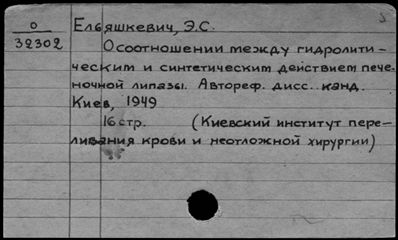 О
32302
Ельяшкевич, Э.С.
О соотношении между гидролити-
ческим и синтетическим действием пече-
ночной липазы. Автореф. дисс. канд.
Киев, 1949
16 стр. (Киевский институт пере-
ливания крови и неотложной хирургии)